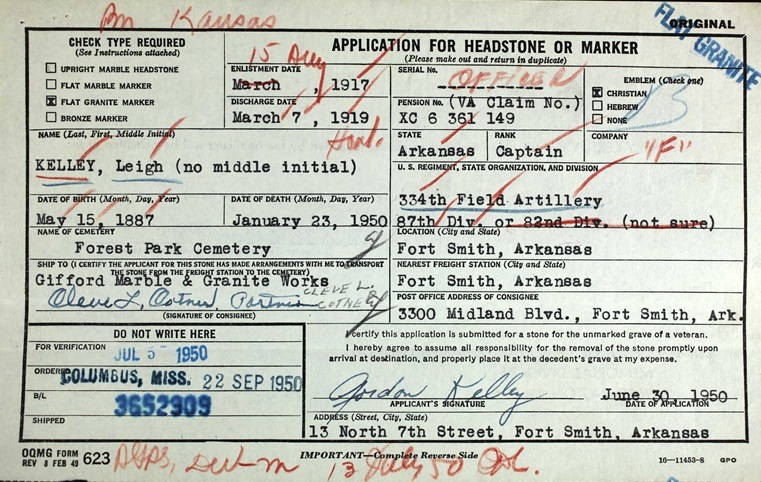 Kansas
ORIGINAL
FLAT GRANITE
CHECK TYPE REQUIRED
(See Instructions attached)
☐ UPRIGHT MARBLE HEADSTONE
☐ FLAT MARBLE MARKER
☒ FLAT GRANITE MARKER
☐ BRONZE MARKER
15 Aug
ENLISTMENT DATE
March , 1917
DISCHARGE DATE
March 7 , 1919
Hon.
APPLICATION FOR HEADSTONE OR MARKER
(Please make out and return in duplicate)
SERIAL No.
OFFICER
----------
PENSION No. (VA Claim No.)
XC 6 361 149
EMBLEM (Check one)
☒ CHRISTIAN
☐ HEBREW
☐ NONE
NAME (Last, First, Middle Initial)
KELLEY, Leigh (no middle initial)
STATE
Arkansas
RANK
Captain
COMPANY
"F"
U. S. REGIMENT, STATE ORGANIZATION, AND DIVISION
334th Field Artillery
87th Div. or 82nd Div. (not sure)
DATE OF BIRTH (Month, Day, Year)
May 15, 1887
DATE OF DEATH (Month, Day, Year)
January 23, 1950
NAME OF CEMETERY
Forest Park Cemetery
LOCATION (City and State)
Fort Smith, Arkansas
SHIP TO (I CERTIFY THE APPLICANT FOR THIS STONE HAS MADE ARRANGEMENTS WITH ME TO TRANSPORT
THE STONE FROM THE FREIGHT STATION TO THE CEMETERY)
Gifford Marble & Granite Works
Cleve L. Cotner Partner
CLEVE L.
COTNER
(SIGNATURE OF CONSIGNEE)
NEAREST FREIGHT STATION (City and State)
Fort Smith, Arkansas
POST OFFICE ADDRESS OF CONSIGNEE
3300 Midland Blvd., Fort Smith, Ark.
DO NOT WRITE HERE
FOR VERIFICATION
JUL 5 1950
ORDERED
COLUMBUS, MISS. 22 SEP 1950
B/L
3652909
SHIPPED
I certify this application is submitted for a stone for the unmarked grave of a veteran.
I hereby agree to assume all responsibility for the removal of the stone promptly upon
arrival at destination, and properly place it at the decedent's grave at my expense.
Gordon Kelley
June 30, 1950
APPLICANT'S SIGNATURE
DATE OF APPLICATION
ADDRESS (Street, City, State)
13 North 7th Street, Fort Smith, Arkansas
OQMG FORM
REV 8 FEB 49 623
IMPORTANT—Complete Reverse Side
16—11453-8 GPO
13 July 50